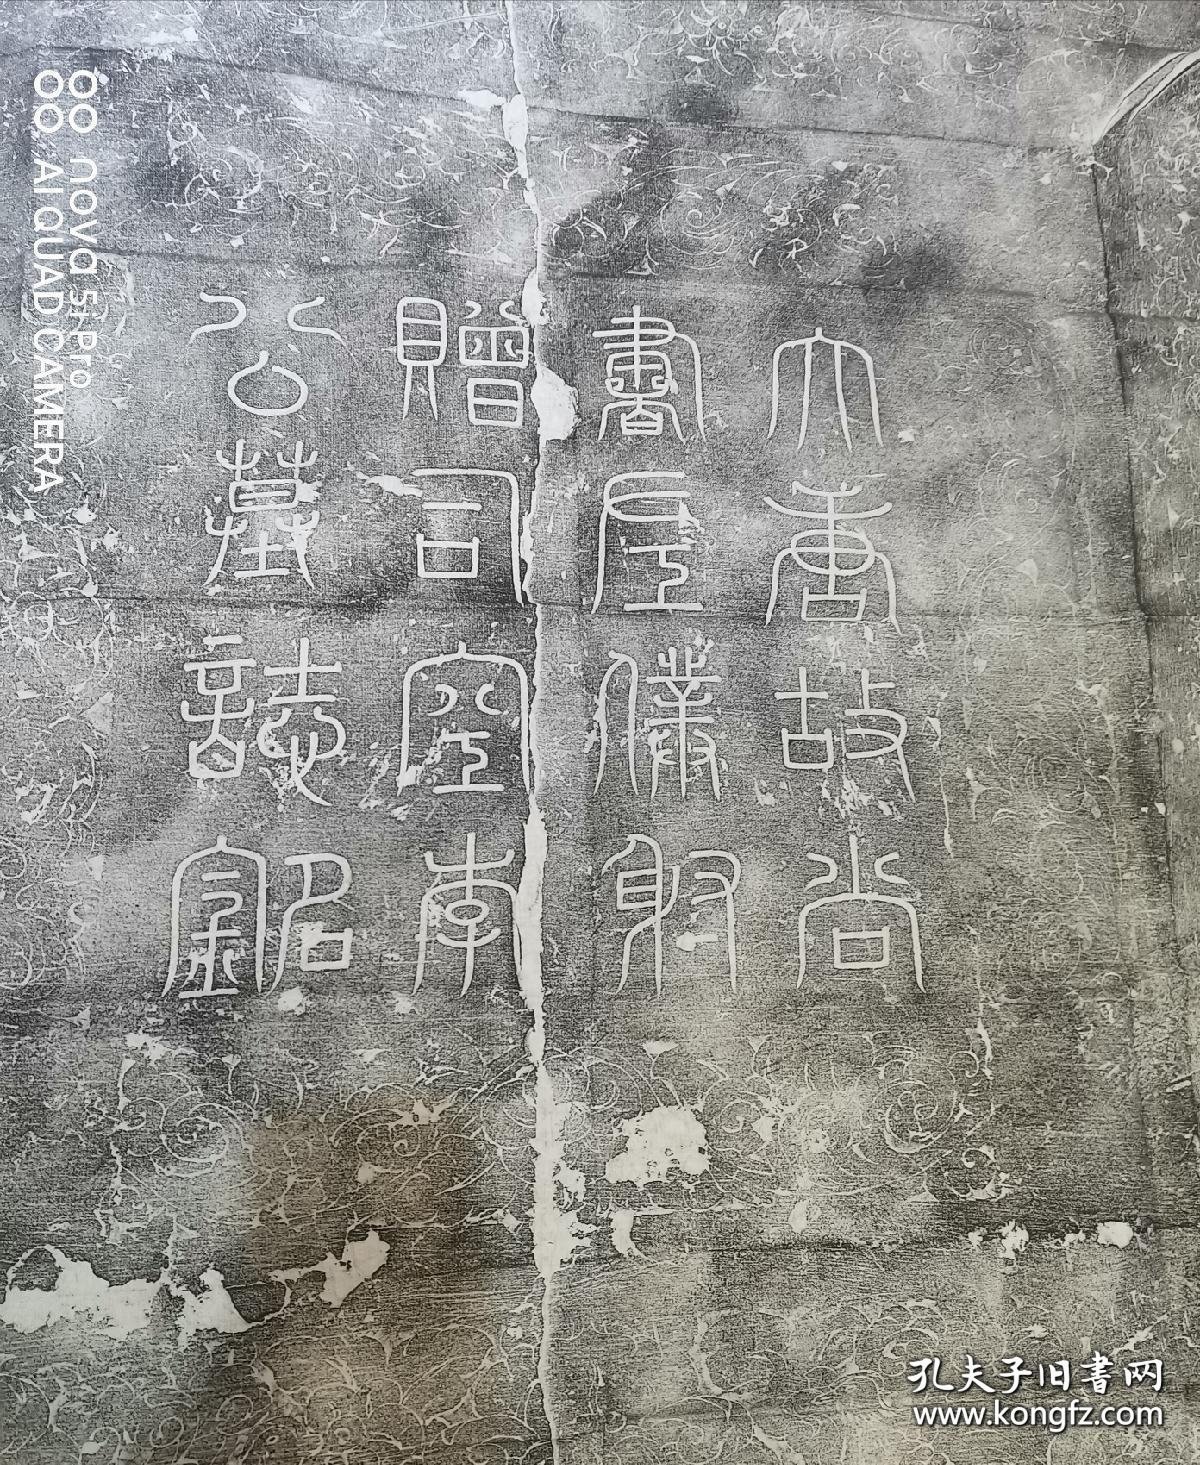 大唐故尚
書左僕射
贈司空李
公墓誌銘
nova 5i Pro
AI QUAD CAMERA
孔夫子旧書网
www.kongfz.com